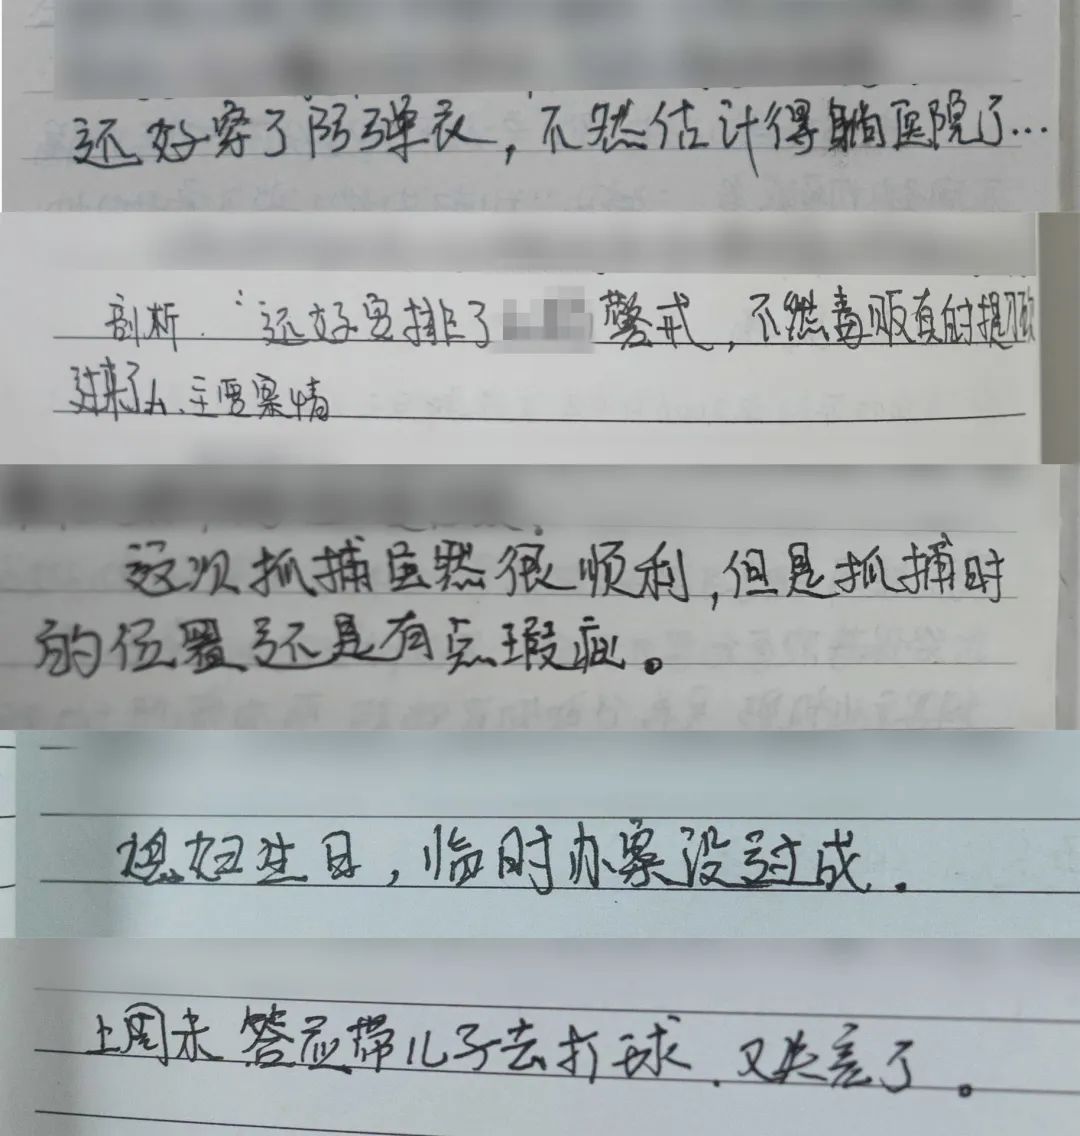 还好穿了防弹衣，不然估计得躺医院了…
剖析：还好安排了 警戒，不然毒贩有时提
过来了 主要案情
这次抓捕虽然很顺利，但是抓捕时
的位置还是有点瑕疵。
媳妇生日，临时办案没过成.
上周末 答应带儿子去打球.又失言了。